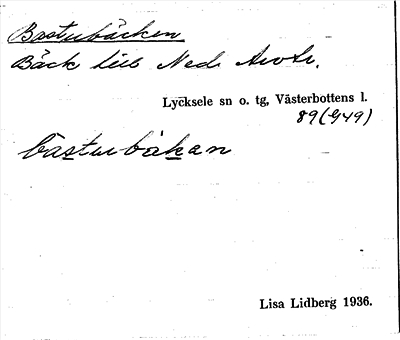 Bastubäcken
Bäck till Ned.
Lycksele sn o. tg, Västerbottens l.
89 (949)
bastubäkan
Lisa Lidberg 1936.